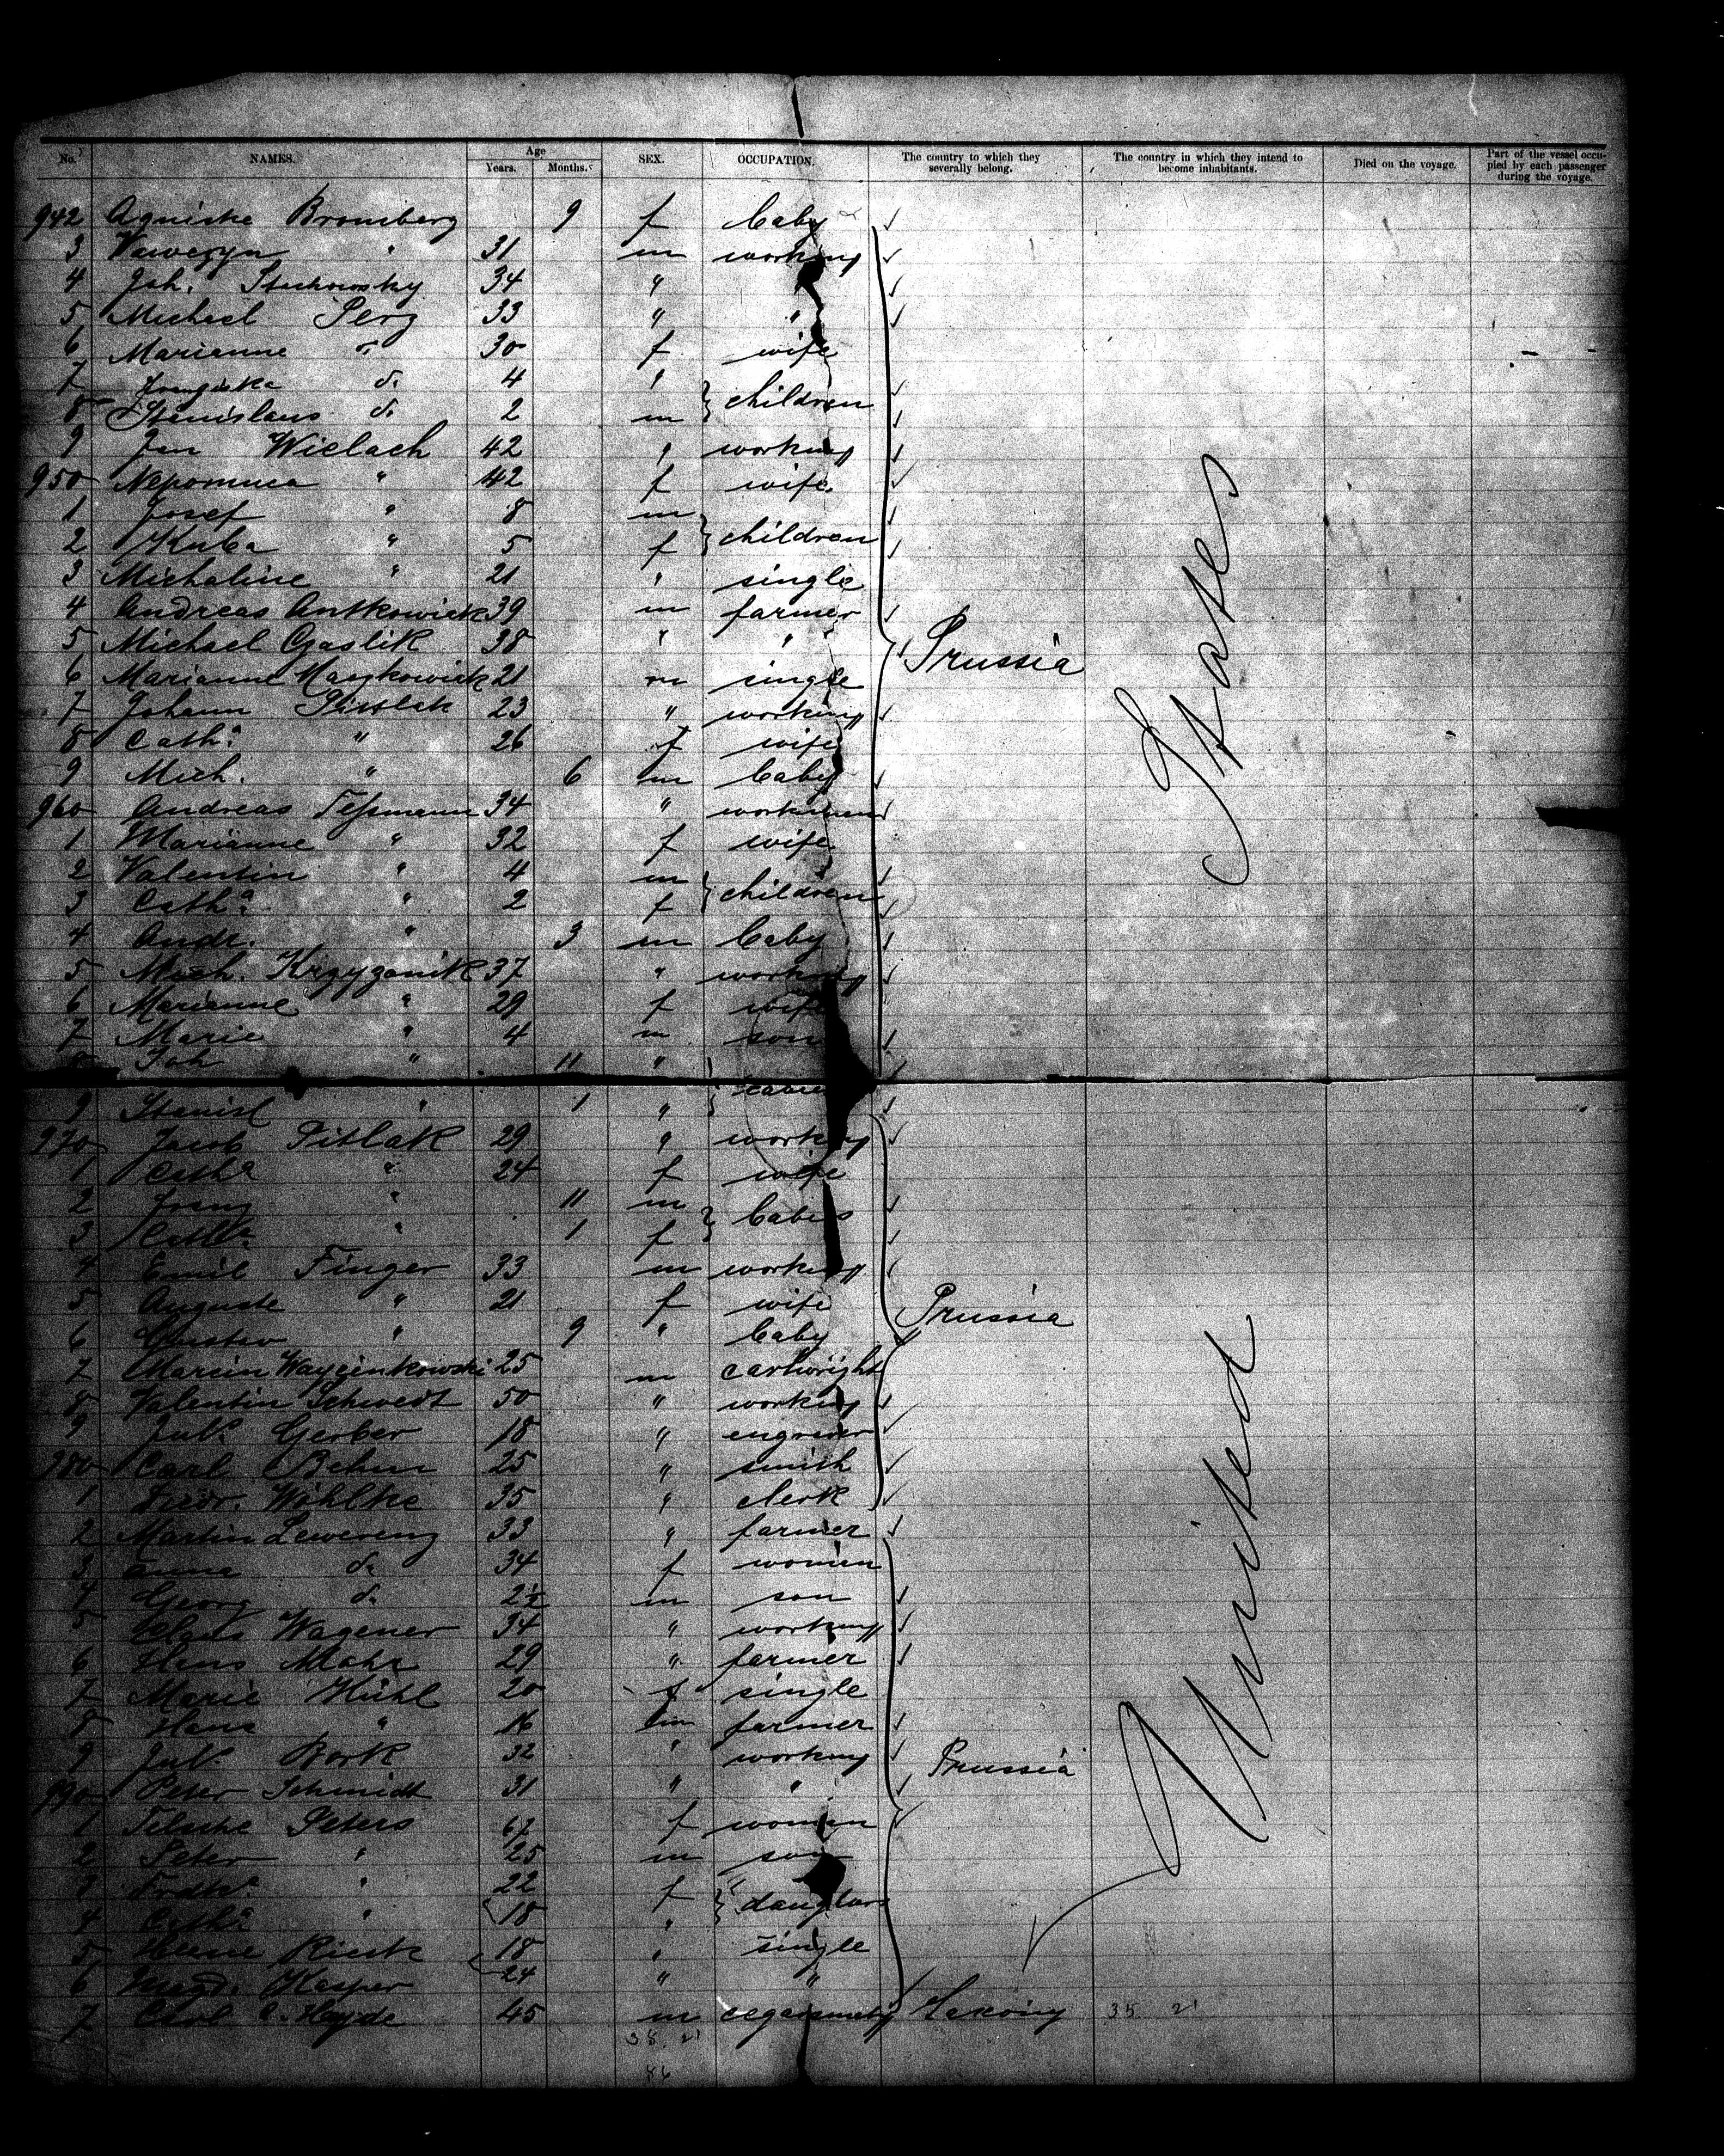 No. NAMES. Age Years. Months. SEX. OCCUPATION. The country to which they severally belong. The country in which they intend to become inhabitants. Died on the voyage. Part of the vessel occupied by each passenger during the voyage.
942 Agniske Bromberg 9 f baby
3 Vaweryn " 31 m working
4 Joh. Stachowsky 34 " "
5 Michael Perz 33 " "
6 Marianne do 30 f wife
7 Franziska do 4 " children
8 Stanislaus do 2 m
9 Jan Wielach 42 " working
950 Nepomuca " 42 f wife
1 Josef " 8 m children
2 Kuba " 5 f
3 Michaline " 21 " single
4 Andreas Antkowiak 39 m farmer
5 Michael Czaslik 38 " " Prussia
6 Marianne Maszkowiak 21 m single
7 Johann Pitslak 23 " working
8 Catha " 26 f wife
9 Mich. " 6 m baby
960 Andreas Tessmann 34 " workman
1 Marianne " 32 f wife
2 Valentin " 4 m children
3 Catha " 2 f
4 Andr. " 3 m baby
5 Mich. Krzyzanik 37 " working
6 Marianne " 29 f wife
7 Marie " 4 m son
8 Joh " 11 "
9 Stanisl " 1 "
970 Jacob Pitlak 29 " working
1 Catha " 24 f wife
2 Franz " 11 m babies
3 Catha " 1 f
4 Emil Finger 33 m working
5 Auguste " 21 f wife Prussia
6 Gustav " 9 " baby
7 Marcin 25 m cartwright
8 Valentin Schwedt 50 " working
9 Jul. Gerber 18 " engraver
980 Carl Behm 25 " smith
1 Friedr. Wöhlke 35 " clerk
2 Martin Lewerenz 33 " farmer
3 Anna do 34 f women
4 Georg do 2½ m son
5 Claus Wagener 34 " working
6 Hans Mohr 29 " farmer
7 Marie Kühl 20 f single
8 Hans " 16 m farmer
9 Jul. Bork 32 " working Prussia
990 Peter Schmidt 31 " "
1 Telsche Peters 67 f women
2 Peter " 25 m son
3 " 22 f daughters
4 Catha " 18 "
5 Rieck 18 " single
6 Magd. Kasper 24 " "
7 Carl Heyde 45 m Saxony 35 21
38 21
United States